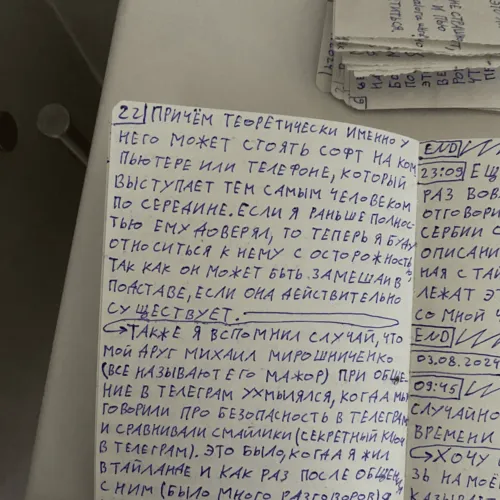 22 ПРИЧЁМ ТЕОРЕТИЧЕСКИ ИМЕННО У
НЕГО МОЖЕТ СТОЯТЬ СОФТ НА КОМ
ПЬЮТЕРЕ ИЛИ ТЕЛЕФОНЕ, КОТОРЫЙ
ВЫСТУПАЕТ ТЕМ САМЫМ ЧЕЛОВЕКОМ
ПО СЕРЕДИНЕ. ЕСЛИ Я РАНЬШЕ ПОЛНОС-
ТЬЮ ЕМУ ДОВЕРЯЛ, ТО ТЕПЕРЬ Я БУДУ
ОТНОСИТЬСЯ К НЕМУ С ОСТОРОЖНОСТЬ
ТАК КАК ОН МОЖЕТ БЫТЬ ЗАМЕШАН В
ПОДСТАВЕ, ЕСЛИ ОНА ДЕЙСТВИТЕЛЬНО
СУЩЕСТВУЕТ.
ТАКЖЕ Я ВСПОМНИЛ СЛУЧАЙ, ЧТО
МОЙ ДРУГ МИХАИЛ МИРОШНИЧЕНКО
(ВСЕ НАЗЫВАЮТ ЕГО МАЖОР) ПРИ ОБЩЕ-
НИЕ В ТЕЛЕГРАМ УХМЫЛЯЛСЯ, КОГДА МЫ
ГОВОРИЛИ ПРО БЕЗОПАСНОСТЬ В ТЕЛЕГРАМ
И СРАВНИВАЛИ СМАЙЛИКИ (СЕКРЕТНЫЙ КЛЮЧ
В ТЕЛЕГРАМ). ЭТО БЫЛО, КОГДА Я ЖИЛ
В ТАЙЛАНДЕ И КАК РАЗ ПОСЛЕ ОБЩЕНИ
С НИМ (БЫЛО МНОГО РАЗГОВОРОВ
END
23:09 ЕЩ
РАЗ ВОВ
ОТГОВОРИ
СЕРБИИ С
ОПИСАНИ
НАЯ С ТАЙ
ЛЕЖАТ ЭТ
СО МНОЙ Ч
END
03.08.2024
09:45
СЛУЧАЙНО
ВРЕМЕНИ
ХОЧУ
ЗЬ НА МОЕ